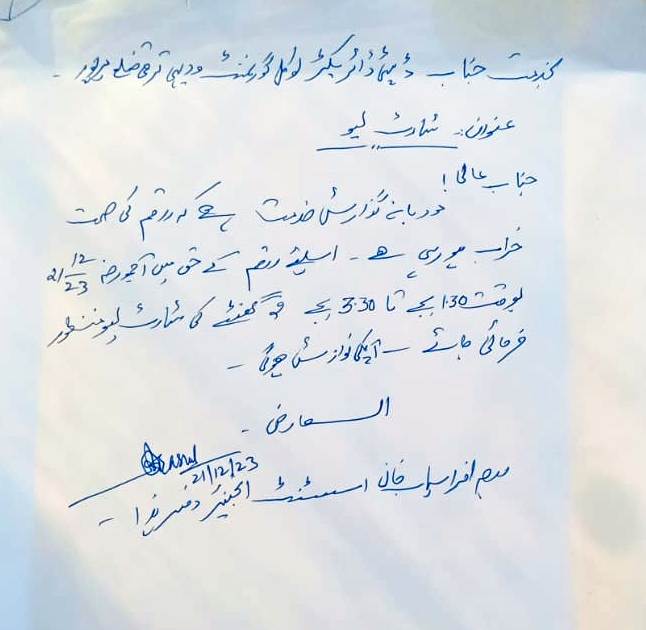 بخدمت جناب ڈپٹی ڈائریکٹر لوکل گورنمنٹ ودیہی ترقی ضلع میرپور ۔
عنوان :۔ شارٹ لیو
جناب عالی !
مودبانہ گذارش خدمت ہے کہ راقم کی صحت
خراب ہو رہی ہے ۔ اسلیئے راقم کے حق میں آج مورخہ 21/12/23
بوقت 1:30 بجے تا 3:30 بجے 2 گھنٹے کی شارٹ لیو منظور
فرمائی جائے ۔ آپکی نوازش ہوگی ۔
العارض ۔
21/12/23
افراسیاب خان اسسٹنٹ انجینئر دفتر ہذا ۔